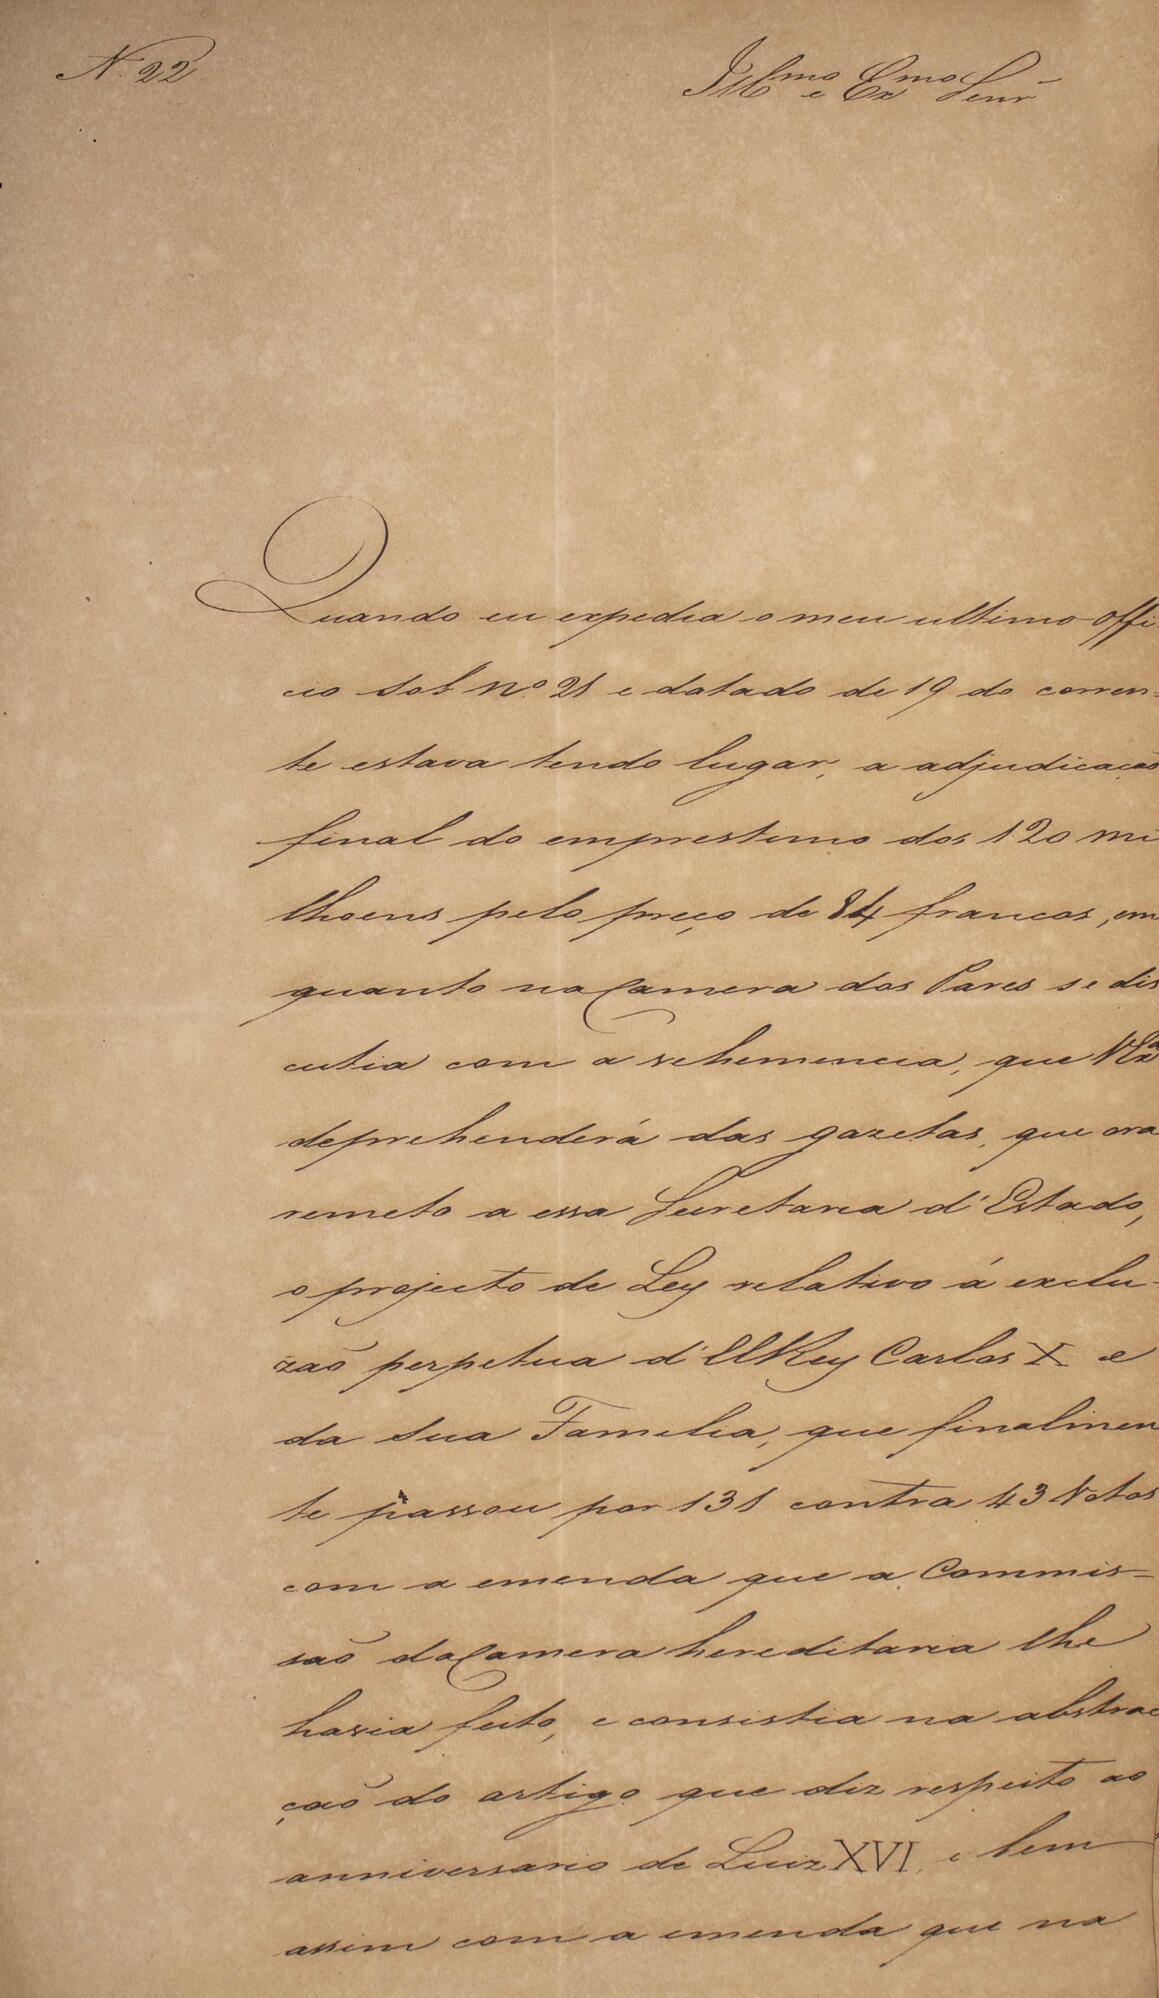 N. 22
Ill.mo e Ex.mo Senr
Quando eu expedia o meu ultimo offi-
cio sob n.o 21 e datado de 19 do corren-
te estava tendo lugar, a adjudicação
final do emprestimo dos 120 mi
lhoens pelo preço de 84 francos, em
quanto na Camera dos Pares se dis
cutia com a vehemencia, que V Exa
deprehenderá das gazetas, que ora
remeto a essa Secretaria d'Estado,
o projecto de Ley relativo á exclu-
zaõ perpetua d'ElRey Carlos X e
da sua Familia, que finalmen
te passou por 131 contra 43 Votos
com a emenda que a Commis-
saõ da Camera hereditaria lhe
havia feito, e consistia na abstrac
çaõ do artigo que diz respeito ao
anniversario de Luiz XVI, e bem
assim com a emenda que na